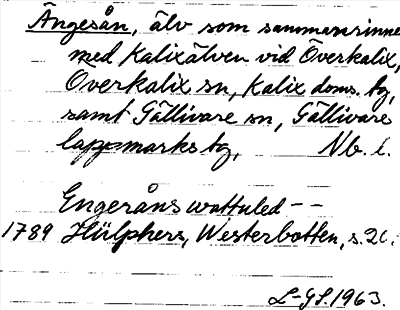 Ängesån, älv som sammanrinne
med Kalixälven vid Överkalix,
Överkalix sn, Kalix doms. tg,
samt Gällivare sn, Gällivare
lappmarks tg, Nb. l.
Engeråns wattuled --
1789 Hülphers, Westerbotten, s. 26.
L-GL. 1963.